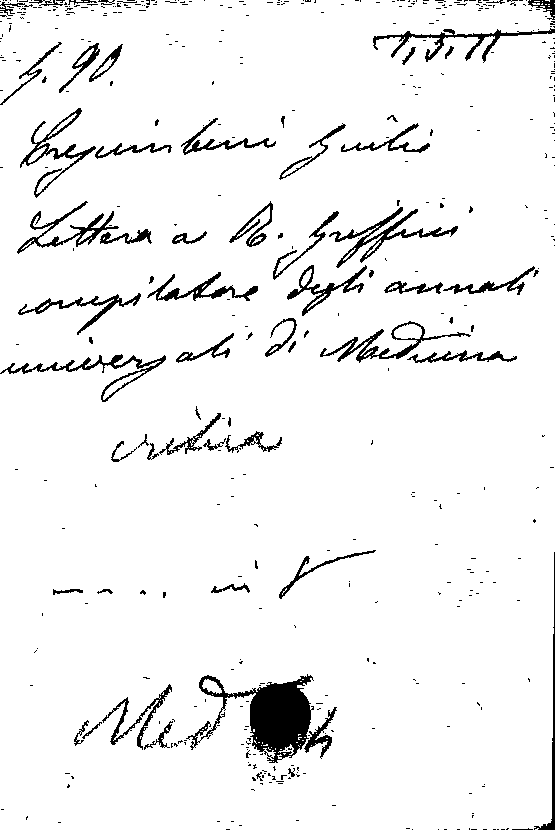 1,5.11
G. 90.
Creguimbeni Giulio
Lettera a R. Griffini
compilatore degli annali
universali di Medicina
critica
---.. in 8
Med